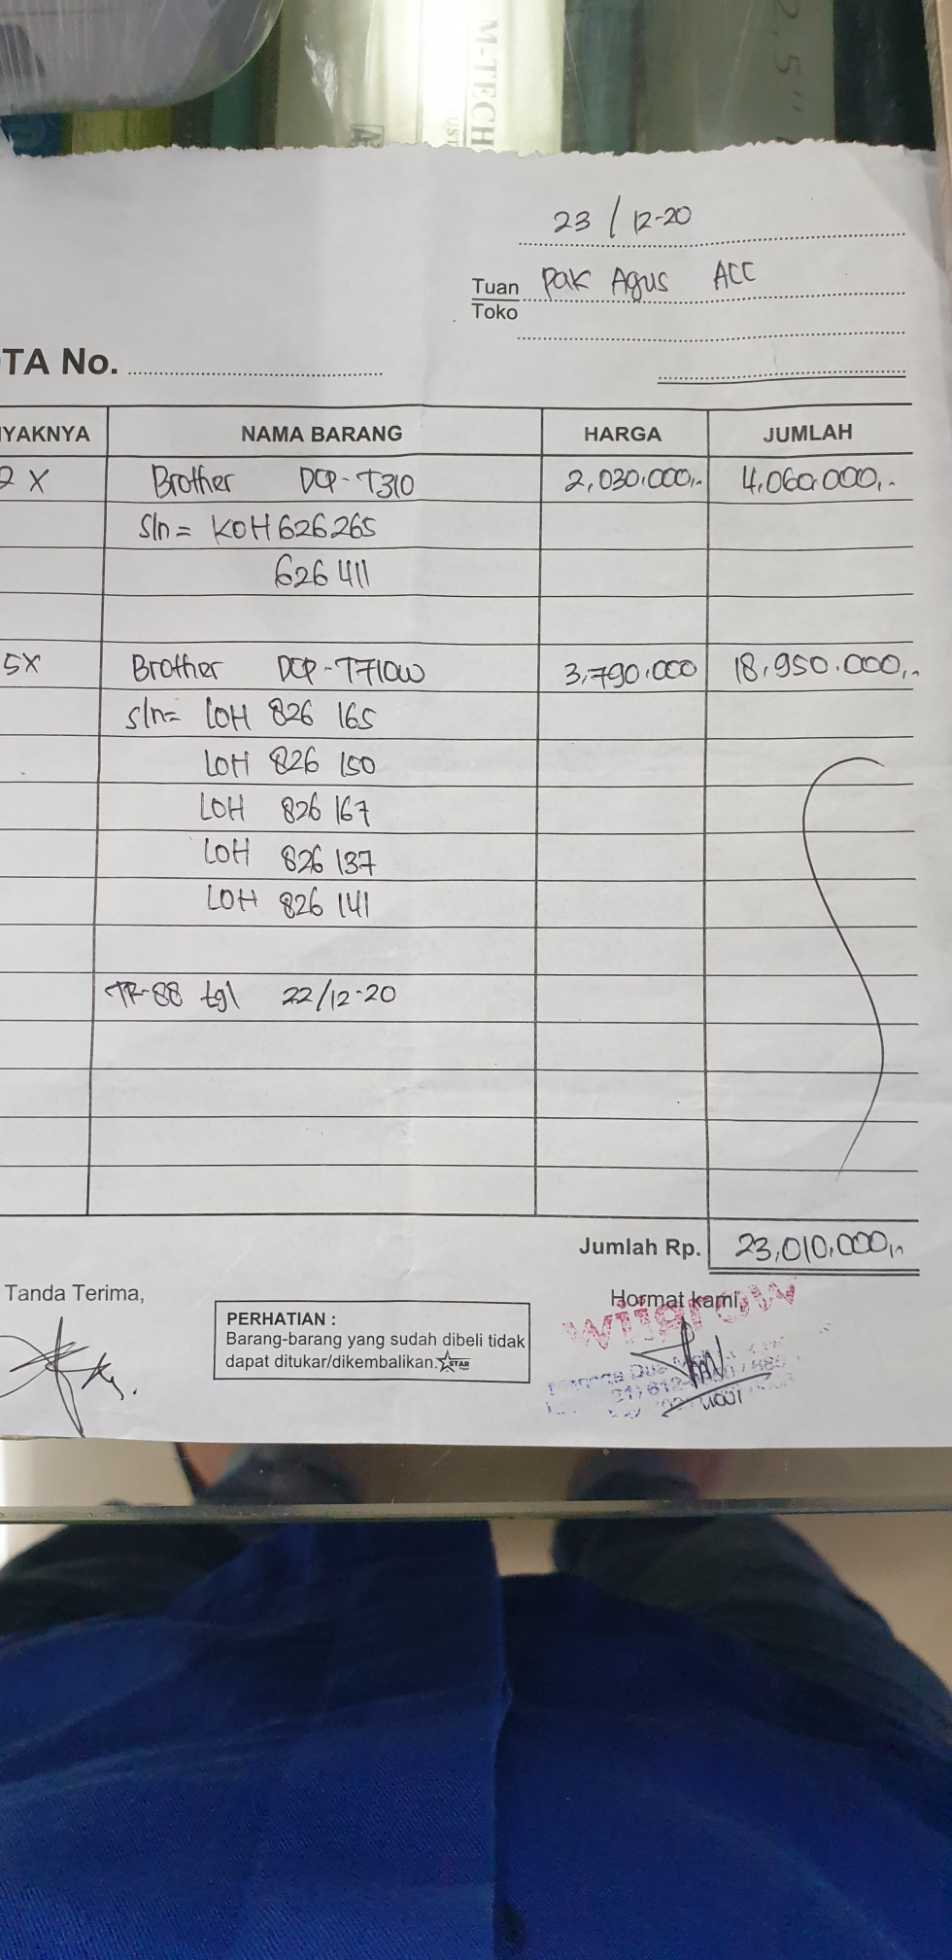 M-TECH
2.5"
23 / 12-20
Tuan Pak Agus ACC
Toko
TA No.
YAKNYA NAMA BARANG HARGA JUMLAH
2 X Brother DCP-T310 2,030.000,- 4.060.000,-
S/n = KOH 626265
626 411
5X Brother DCP-T710W 3,790.000 18.950.000,-
S/n= LOH 826 165
LOH 826 150
LOH 826 167
LOH 826 137
LOH 826 141
TR-88 tgl 22/12-20
Jumlah Rp. 23,010,000,-
Tanda Terima, Hormat kami,
PERHATIAN :
Barang-barang yang sudah dibeli tidak
dapat ditukar/dikembalikan. STAR